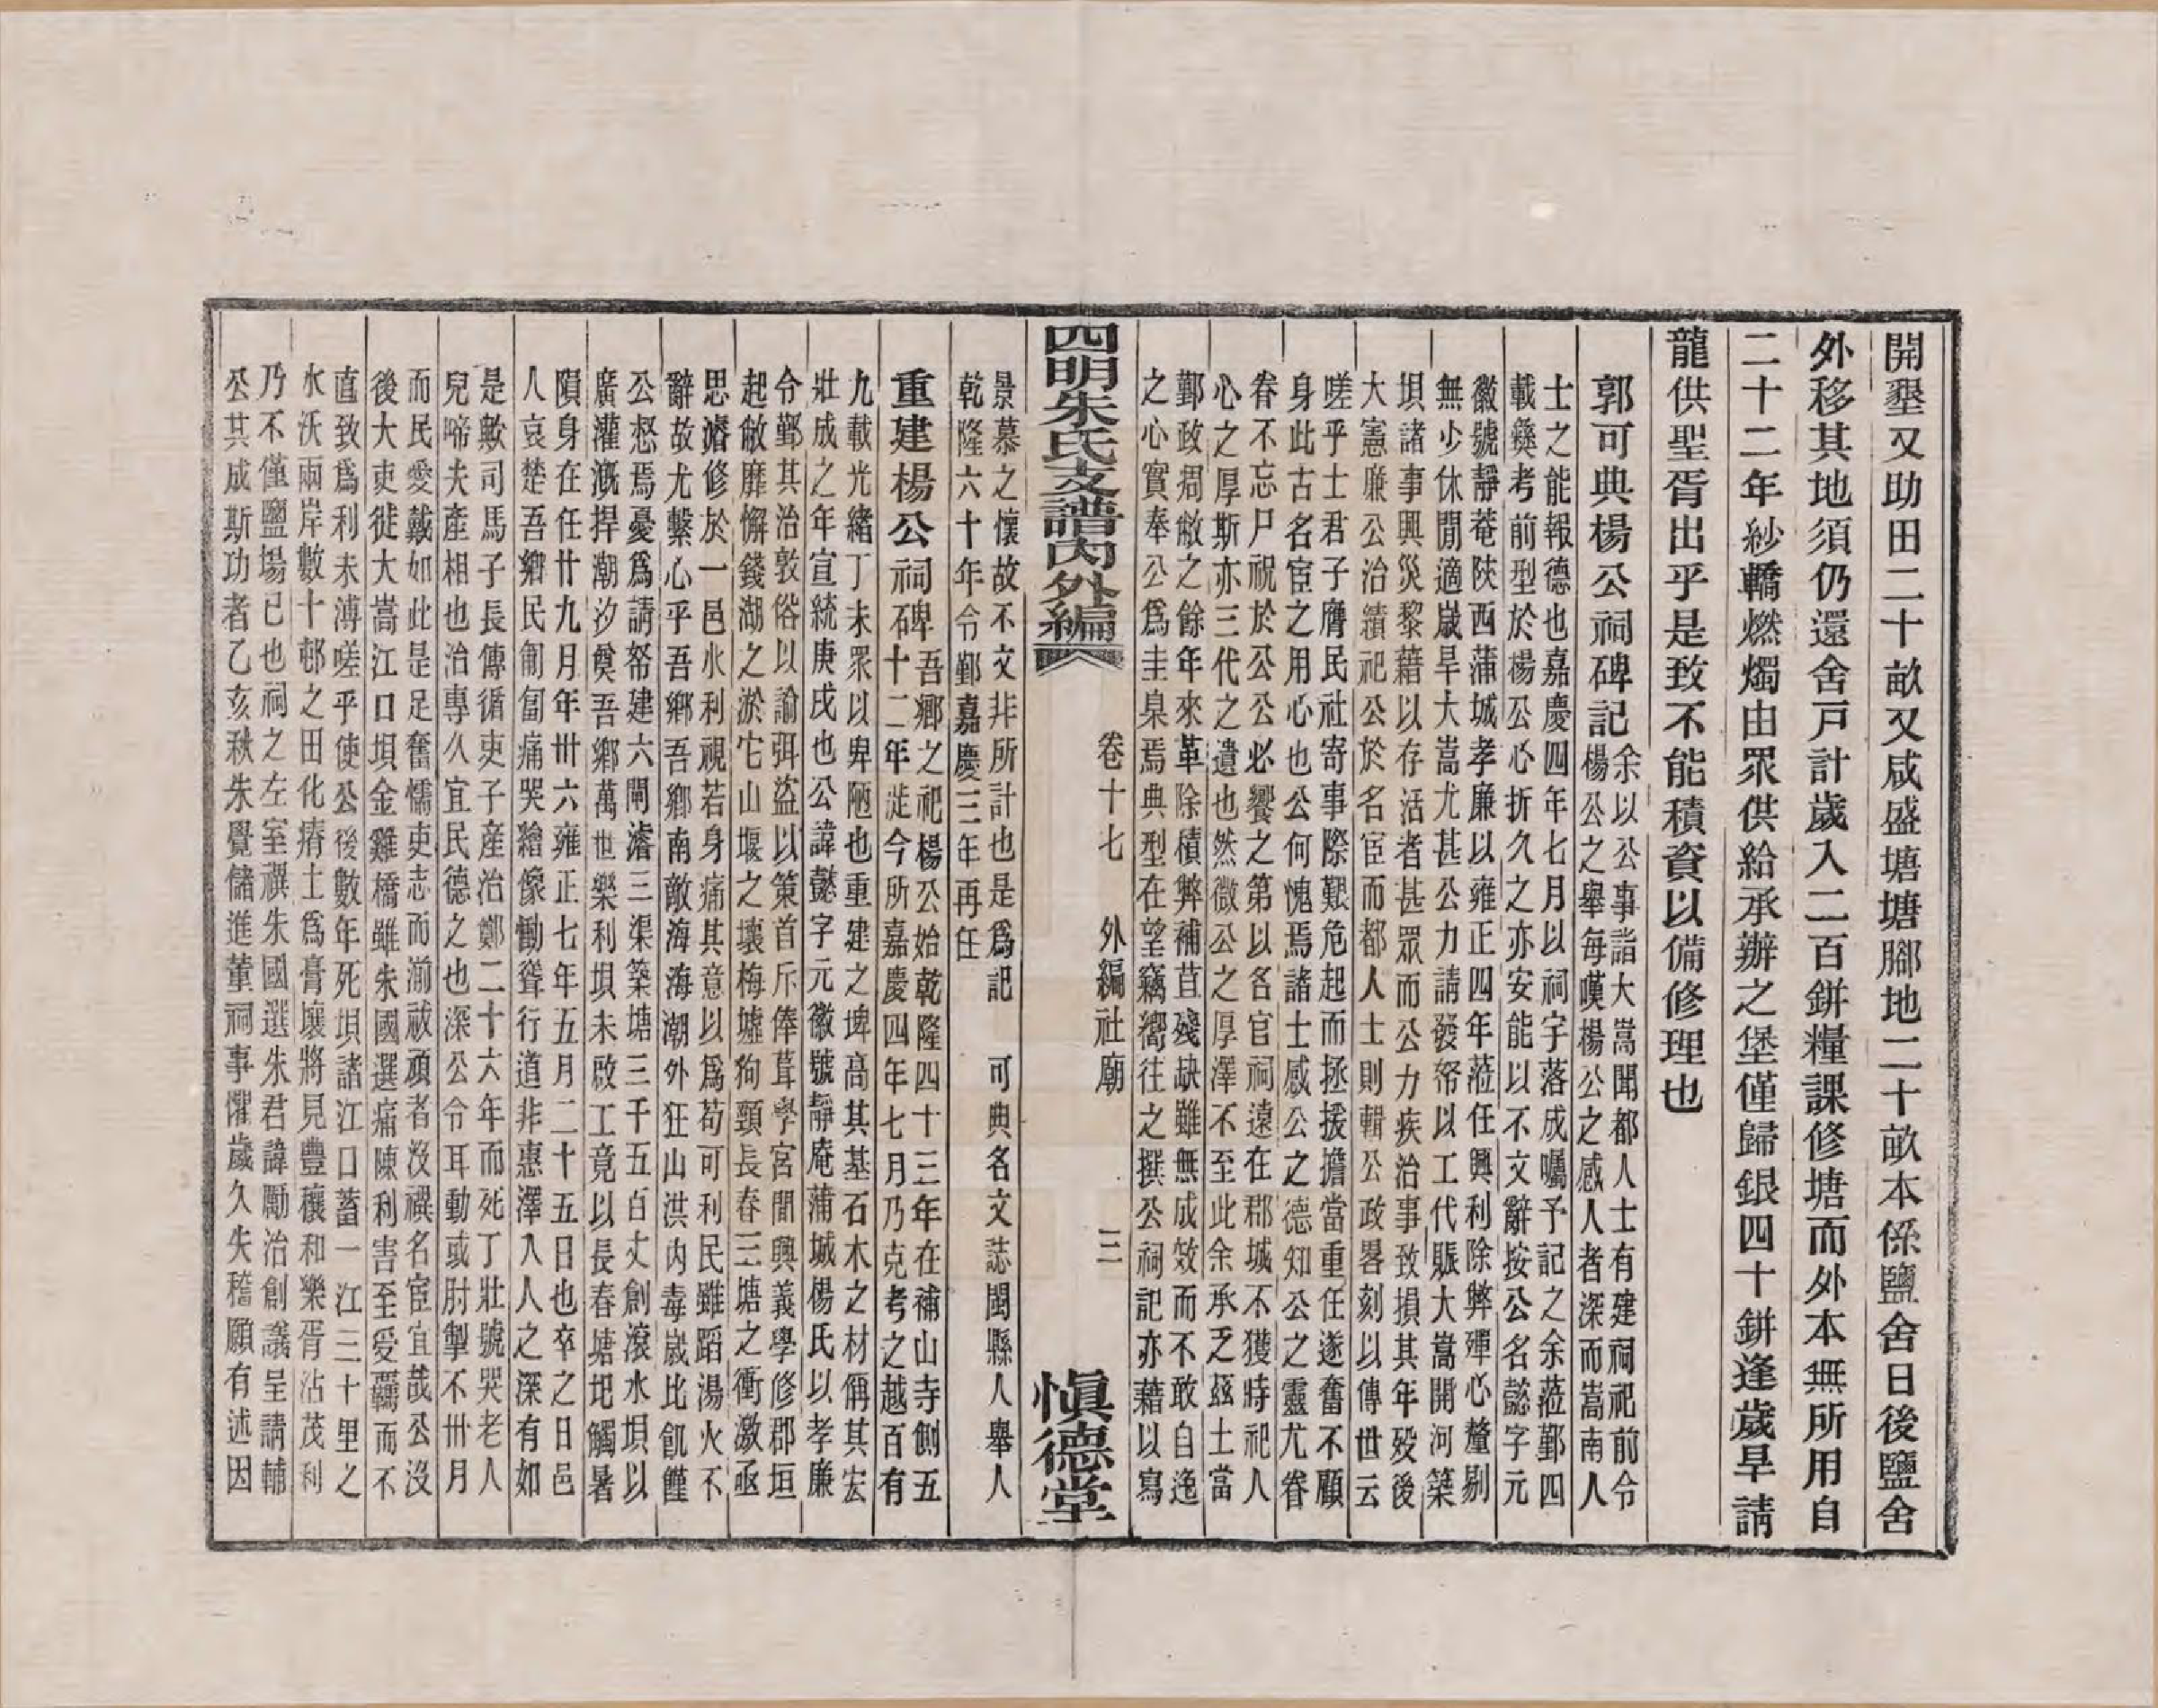 開墾又助田二十畝又咸盛塘塘腳地二十畝本係鹽舍日後鹽舍
外移其地須仍還舍戸計歲入二百鉼糧課修塘而外本無所用自
二十二年紗轎燃燭由眾供給承辦之堡僅歸銀四十鉼逢歲旱請
龍供聖胥出乎是致不能積資以備修理也
郭可典楊公祠碑記
余以公事詣大嵩聞都人士有建祠祀前令
楊公之舉每嘆楊公之感人者深而嵩南人
士之能報德也嘉慶四年七月以祠宇落成囑予記之余蒞鄞四
載蘶考前型於楊公心折久之亦安能以不文辭按公名懿字元
徽號靜菴陝西蒲城孝廉以雍正四年蒞任興利除弊殫心釐剔
無少休閒適歲旱大嵩尤甚公力請發帑以工代賑大嵩開河築
垻諸事興災黎藉以存活者甚眾而公力疾治事致損其年歿後
大憲廉公治績祀公於名宦而都人士則輯公政畧刻以傳世云
嗟乎士君子膺民社寄事際艱危起而拯援擔當重任遂奮不顧
身此古名宦之用心也公何愧焉諸士感公之德知公之靈尤眷
眷不忘尸祝於公公必饗之第以各官祠遠在郡城不獲時祀人
心之厚斯亦三代之遺也然微公之厚澤不至此余承乏茲土當
鄞政凋敝之餘年來革除積弊補苴殘缺雖無成效而不敢自逸
之心實奉公為圭臬焉典型在望竊嚮往之撰公祠記亦藉以寫
四明朱氏支譜內外編
卷十七 外編社廟 三
愼德堂
景慕之懷故不文非所計也是為記 可典名文誌閩縣人舉人
乾隆六十年令鄞嘉慶三年再任
重建楊公祠碑
吾鄉之祀楊公始乾隆四十三年在補山寺側五
十二年嘉慶四年七月乃克考之越百有
九載光緒丁未眾以卑陋也重建之埤高其基石木之材偁其宏
壯成之年宣統庚戌也公諱懿字元徽號靜庵蒲城楊氏以孝廉
令鄞其治敦俗以諭弭盜以策首斥俸葺學宮間興義學修郡垣
起敝靡懈錢湖之淤它山堰之壞梅墟狗頸長春三塘之衝激亟
思濬修於一邑水利視若身痛其意以為苟可利民雖蹈湯火不
辭故尤繫心乎吾鄉吾鄉南敵海海潮外狂山洪內毒嵗比飢饉
公惄焉憂為請帑建六閘濬三渠築塘三千五百丈創滾水垻以
廣灌溉捍潮汐奠吾鄉萬世樂利垻未啟工竟以長春塘圯觸暑
隕身在任廿九月年卅六雍正七年五月二十五日也卒之日邑
人哀楚吾鄉民匍匐痛哭繪像慟聲行道非惠澤入人之深有如
是歟司馬子長傳循吏子產治鄭二十六年而死丁壯號哭老人
兒啼夫產相也治專久宜民德之也深公令耳動或肘掣不卅月
而民愛戴如此是足奮懦吏志而湔祓頑者沒禩名宦宜哉公沒
後大吏徙大嵩江口垻金雞橋雖朱國選痛陳利害至受羈而不
直致為利未溥嗟乎使公後數年死垻諸江口蓄一江三十里之
水沃兩岸數十邨之田化瘠土為膏壤將見豐穰和樂胥沾茂利
乃不僅鹽場已也祠之左室禩朱國選朱君諱勵治創議呈請輔
公其成斯功者乙亥秋朱覺儲進董祠事懼歲久失稽願有述因